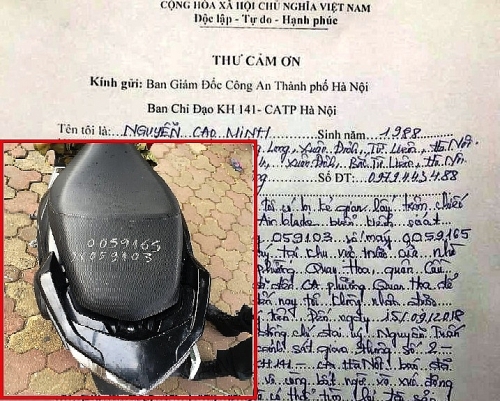 CỘNG HÒA XÃ HỘI CHỦ NGHĨA VIỆT NAM
Độc lập - Tự do - Hạnh phúc
THƯ CẢM ƠN
Kính gửi: Ban Giám Đốc Công An Thành phố Hà Nội
Ban Chỉ Đạo KH 141- CATP Hà Nội
Tên tôi là: NGUYỄN CAO MINH Sinh năm 1988
Long, Xuân Đỉnh, Từ Liêm, Hà Nội
Xuân Đỉnh, Bắc Từ Liêm, Hà Nội
Số ĐT:
tôi có bị kẻ gian lấy trộm chiếc
Air blade biển kiểm soát
059103 số máy 0059165
tại khu vực trước cửa nhà
phường Quan Hoa, quận Cầu
CA phường Quan Hoa để
nay tôi không nhận được
ngày 15/09/2018
đồng chí đại úy Nguyễn Tuấn
cảnh sát giao thông số 2 -
H141 - CA Hà Nội
vô cùng bất ngờ và xúc động
có thể tìm lại tài sản
0059165
059103